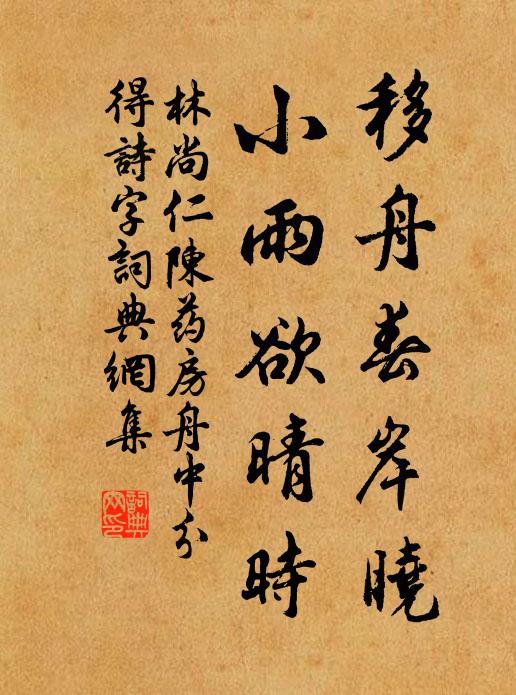 移舟春岸曉
小雨欲晴時
林尚仁陳药房舟中分
得詩字詞典網集
詞典
网印